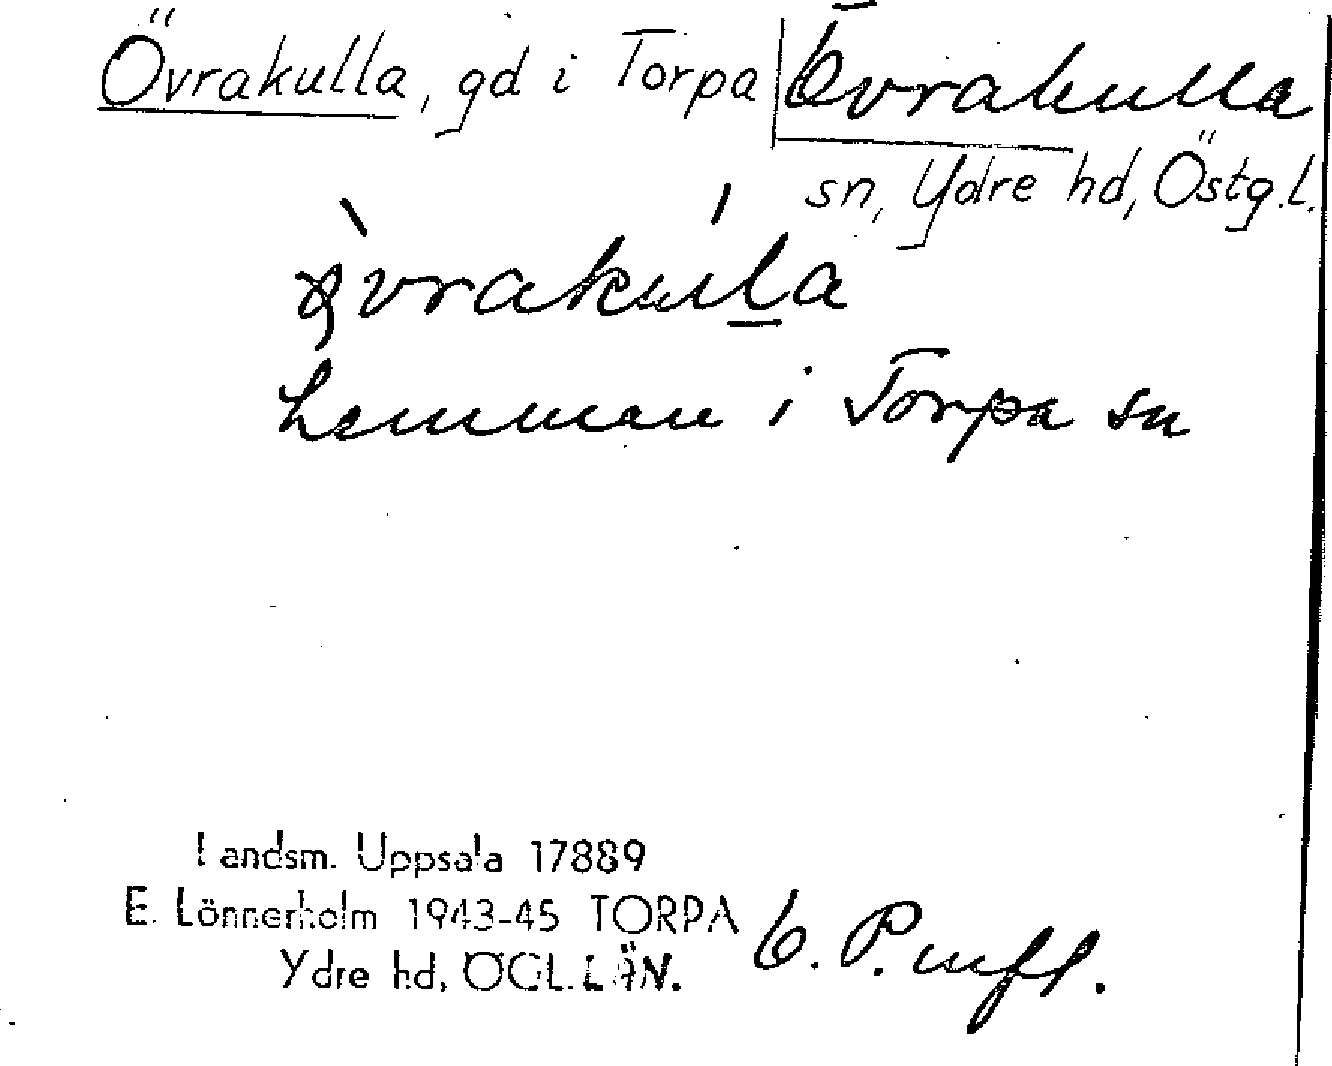 Övrakulla, gd i Torpa Övrakulla
sn, Ydre hd, Östg.l.
hemman i Torpa sn
Landsm. Uppsala 17889
E. Lönnerholm 1943-45 TORPA
Ydre hd, ÖGL. LÄN.